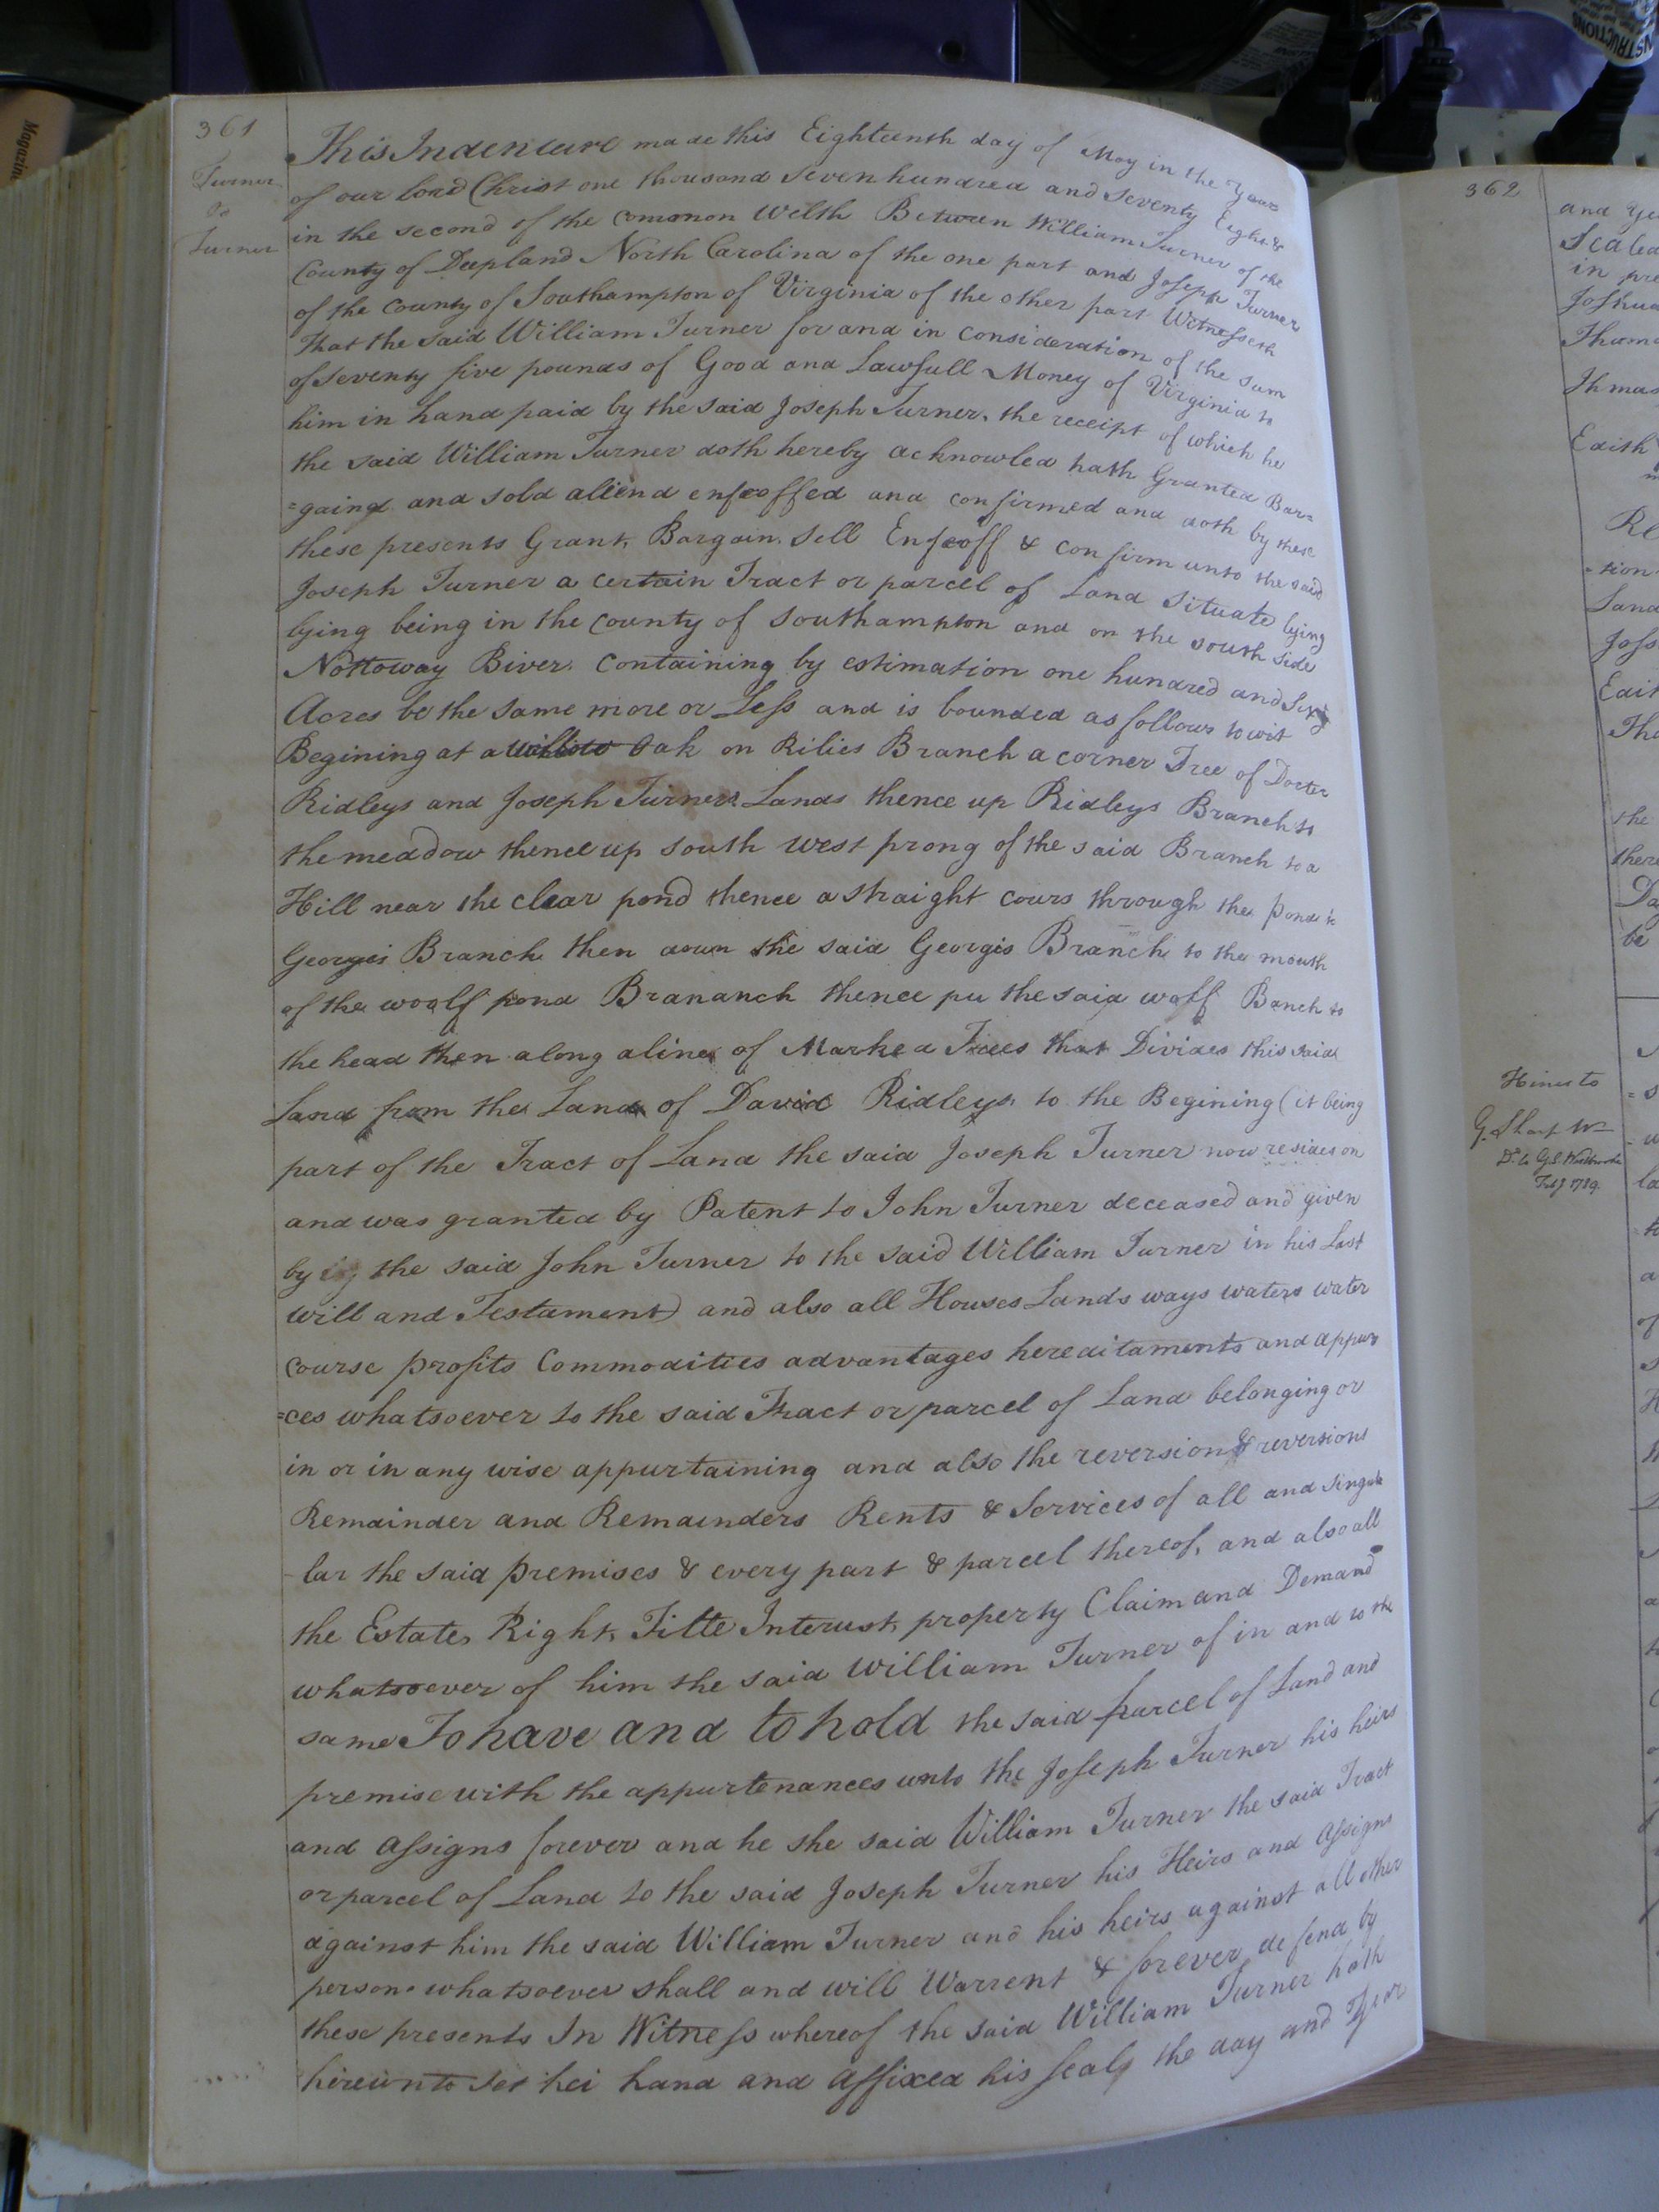 361
Turner
To
Turner
This Indenture made this Eighteenth day of May in the Year
of our lord Christ one thousand Seven hundred and Seventy Eight &
in the second of the common Welth Between William Turner of the
County of Deepland North Carolina of the one part and Joseph Turner
of the County of Southampton of Virginia of the other part Witnesseth
That the said William Turner for and in consideration of the sum
of seventy five pounds of Good and Lawfull Money of Virginia to
him in hand paid by the said Joseph Turner, the receipt of which he
the said William Turner doth hereby acknowled hath Granted Bar=
=gaind and sold aliend enfeoffed and confirmed and doth by these
these presents Grant, Bargain, Sell Enfeoff & confirm unto the said
Joseph Turner a certain Tract or parcel of Land Situate lying
lying being in the county of Southampton and on the south side
Nottoway River. Containing by estimation one hundred and Sixty
Acres be the same more or Less and is bounded as follows to wit
Begining at a willow Oak on Rilies Branch a corner Tree of Docter
Ridleys and Joseph Turners Lands thence up Ridleys Branch to
the meadow thence up south west prong of the said Branch to a
Hill near the clear pond thence a straight cours through the pond to
Georges Branch then down the said Georgis Branch to the mouth
of the woolf pond Brananch thence pu the said wolf Banch to
the head then along a line of Marked Trees that Divides this said
Land from the Land of David Ridleys to the Begining (it being
part of the Tract of Land the said Joseph Turner now resides on
and was granted by Patent to John Turner deceased and given
by the said John Turner to the said William Turner in his Last
will and Testament) and also all Houses Lands ways waters water
course profits Commodities advantages hereditaments and appur
=ces whatsoever to the said Tract or parcel of Land belonging or
in or in any wise appurtaining and also the reversion & reversions
Remainder and Remainders Rents & Services of all and singu
-lar the said premises & every part & parcel thereof, and also all
the Estate, Right, Title Interust, property Claim and Demand
whatsoever of him the said William Turner of in and to the
same To have and to hold the said parcel of Land and
premise with the appurtenances unto the Joseph Turner his heirs
and assigns forever and he the said William Turner the said Tract
or parcel of Land to the said Joseph Turner his Heirs and assigns
against him the said William Turner and his heirs against all other
person whatsoever shall and will Warrent & forever defend by
these presents In Witness whereof the said William Turner hath
hereunto set hei hand and affixed his seal the day and Year
362
and
Scaled
in pre
Joshua
Thom
Thmas
Edith
Re
=tion
Land
Joss
Edit
Tho
the
there
Da
be
Hines to
G. Sharp